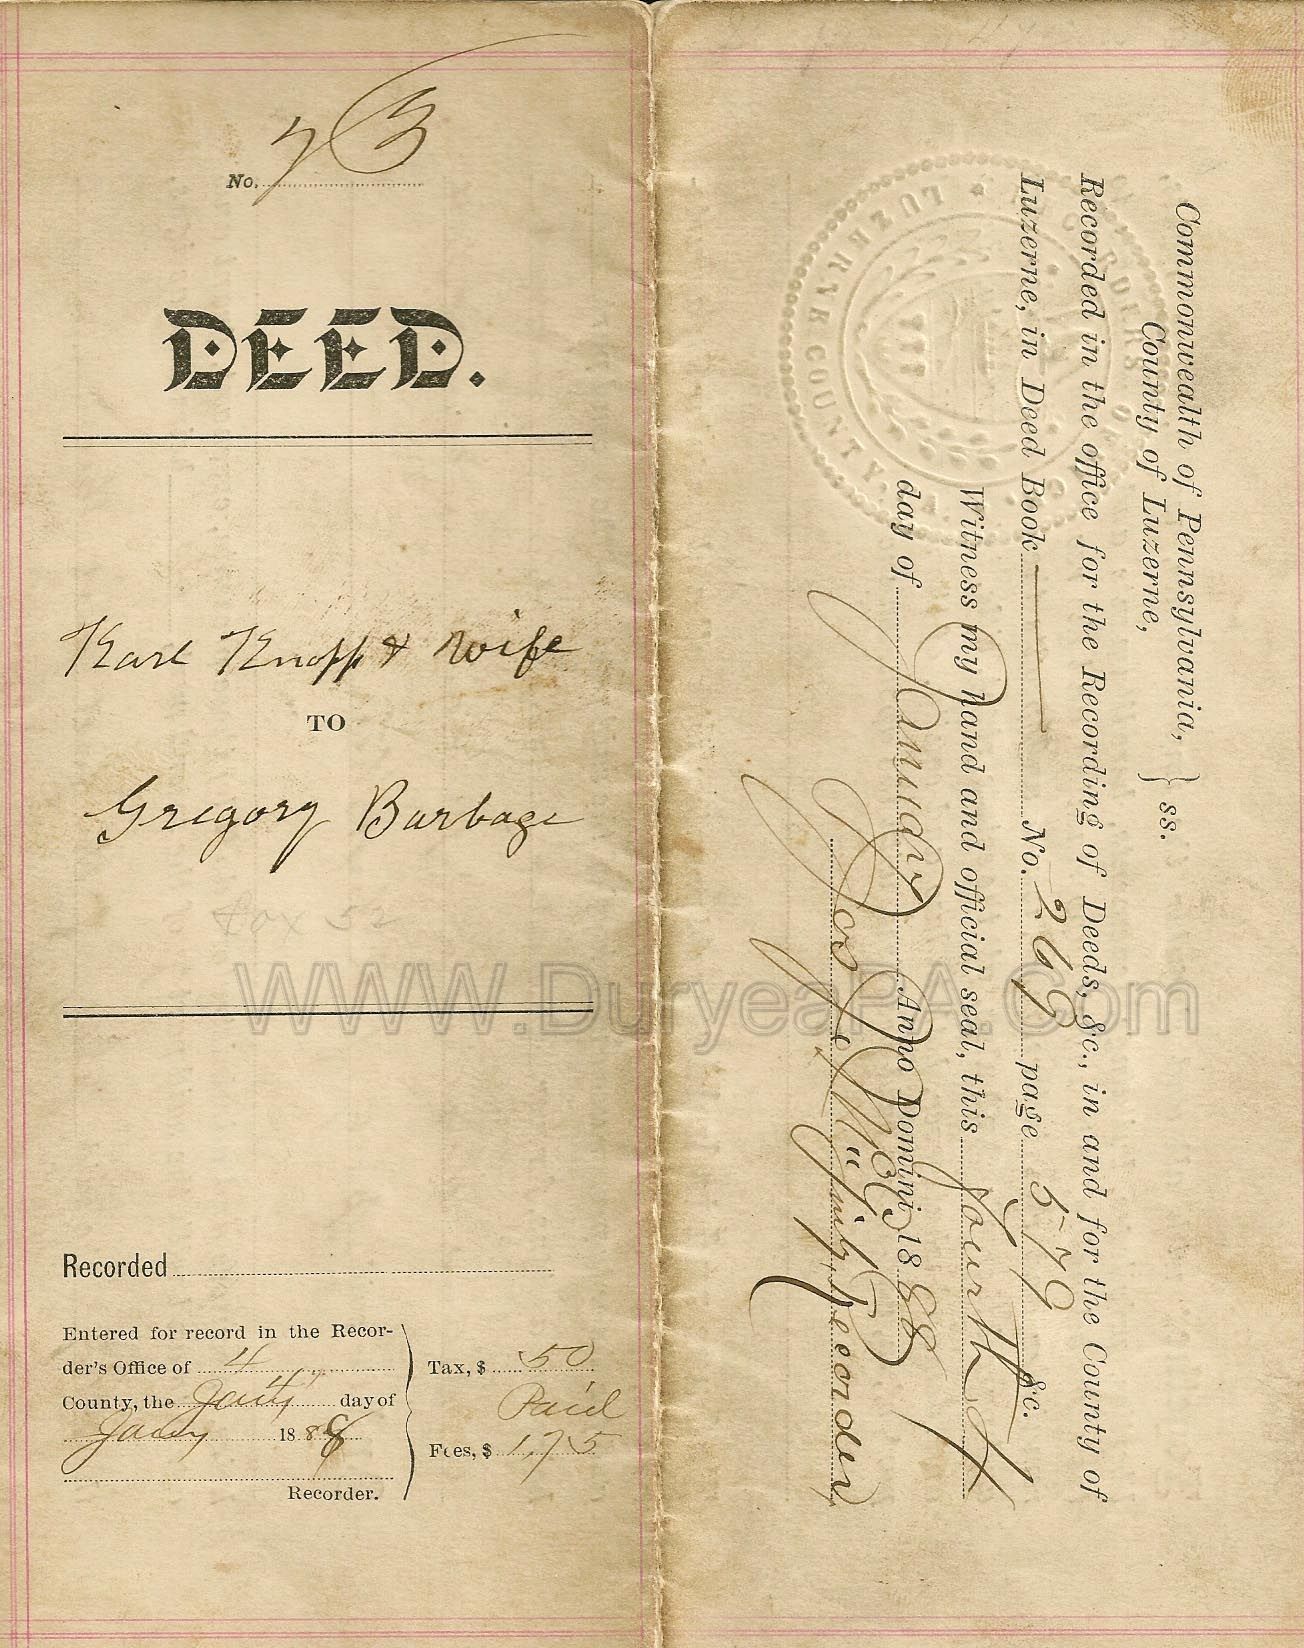 No. 73
DEED.
Karl Knopp & wife
TO
Gregory Burbage
tax 52
Recorded
Entered for record in the Recor-
der's Office of 4
County, the day of
Jany 1888
Recorder.
Tax, $ 50
Paid
Fees, $ 1.75
Commonwealth of Pennsylvania, } ss.
County of Luzerne,
Recorded in the office for the Recording of Deeds, &c., in and for the County of
Luzerne, in Deed Book No. 269 page 579 &c.
Witness my hand and official seal, this fourth
day of January Anno Domini 1888
Recorder
RECORDERS OF
LUZERNE COUNTY PA.
WWW.DuryeaPA.Com